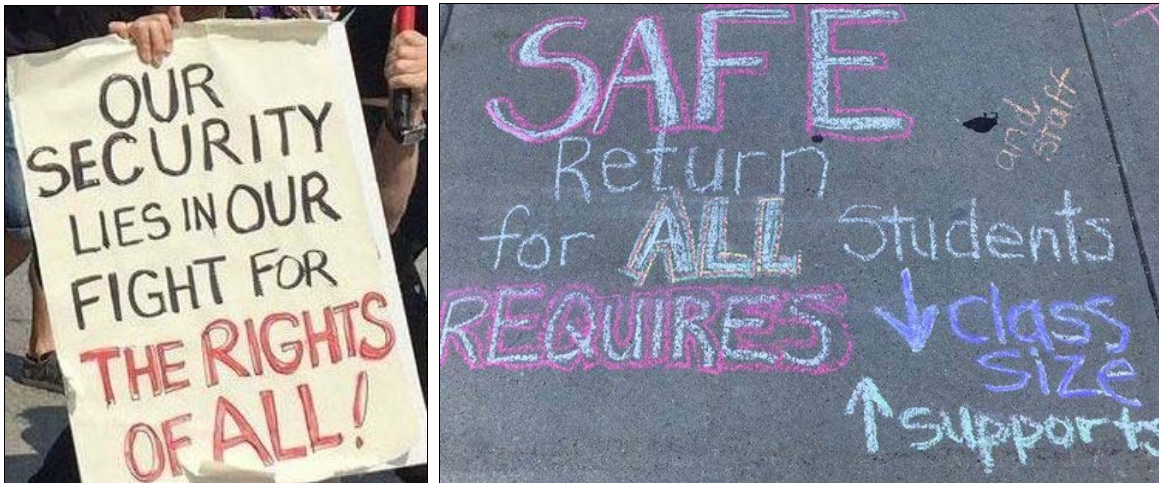 OUR
SECURITY
LIES IN OUR
FIGHT FOR
THE RIGHTS
OF ALL!
SAFE
Return
for ALL Students
and
staff
REQUIRES
↓ class
size
↑ supports